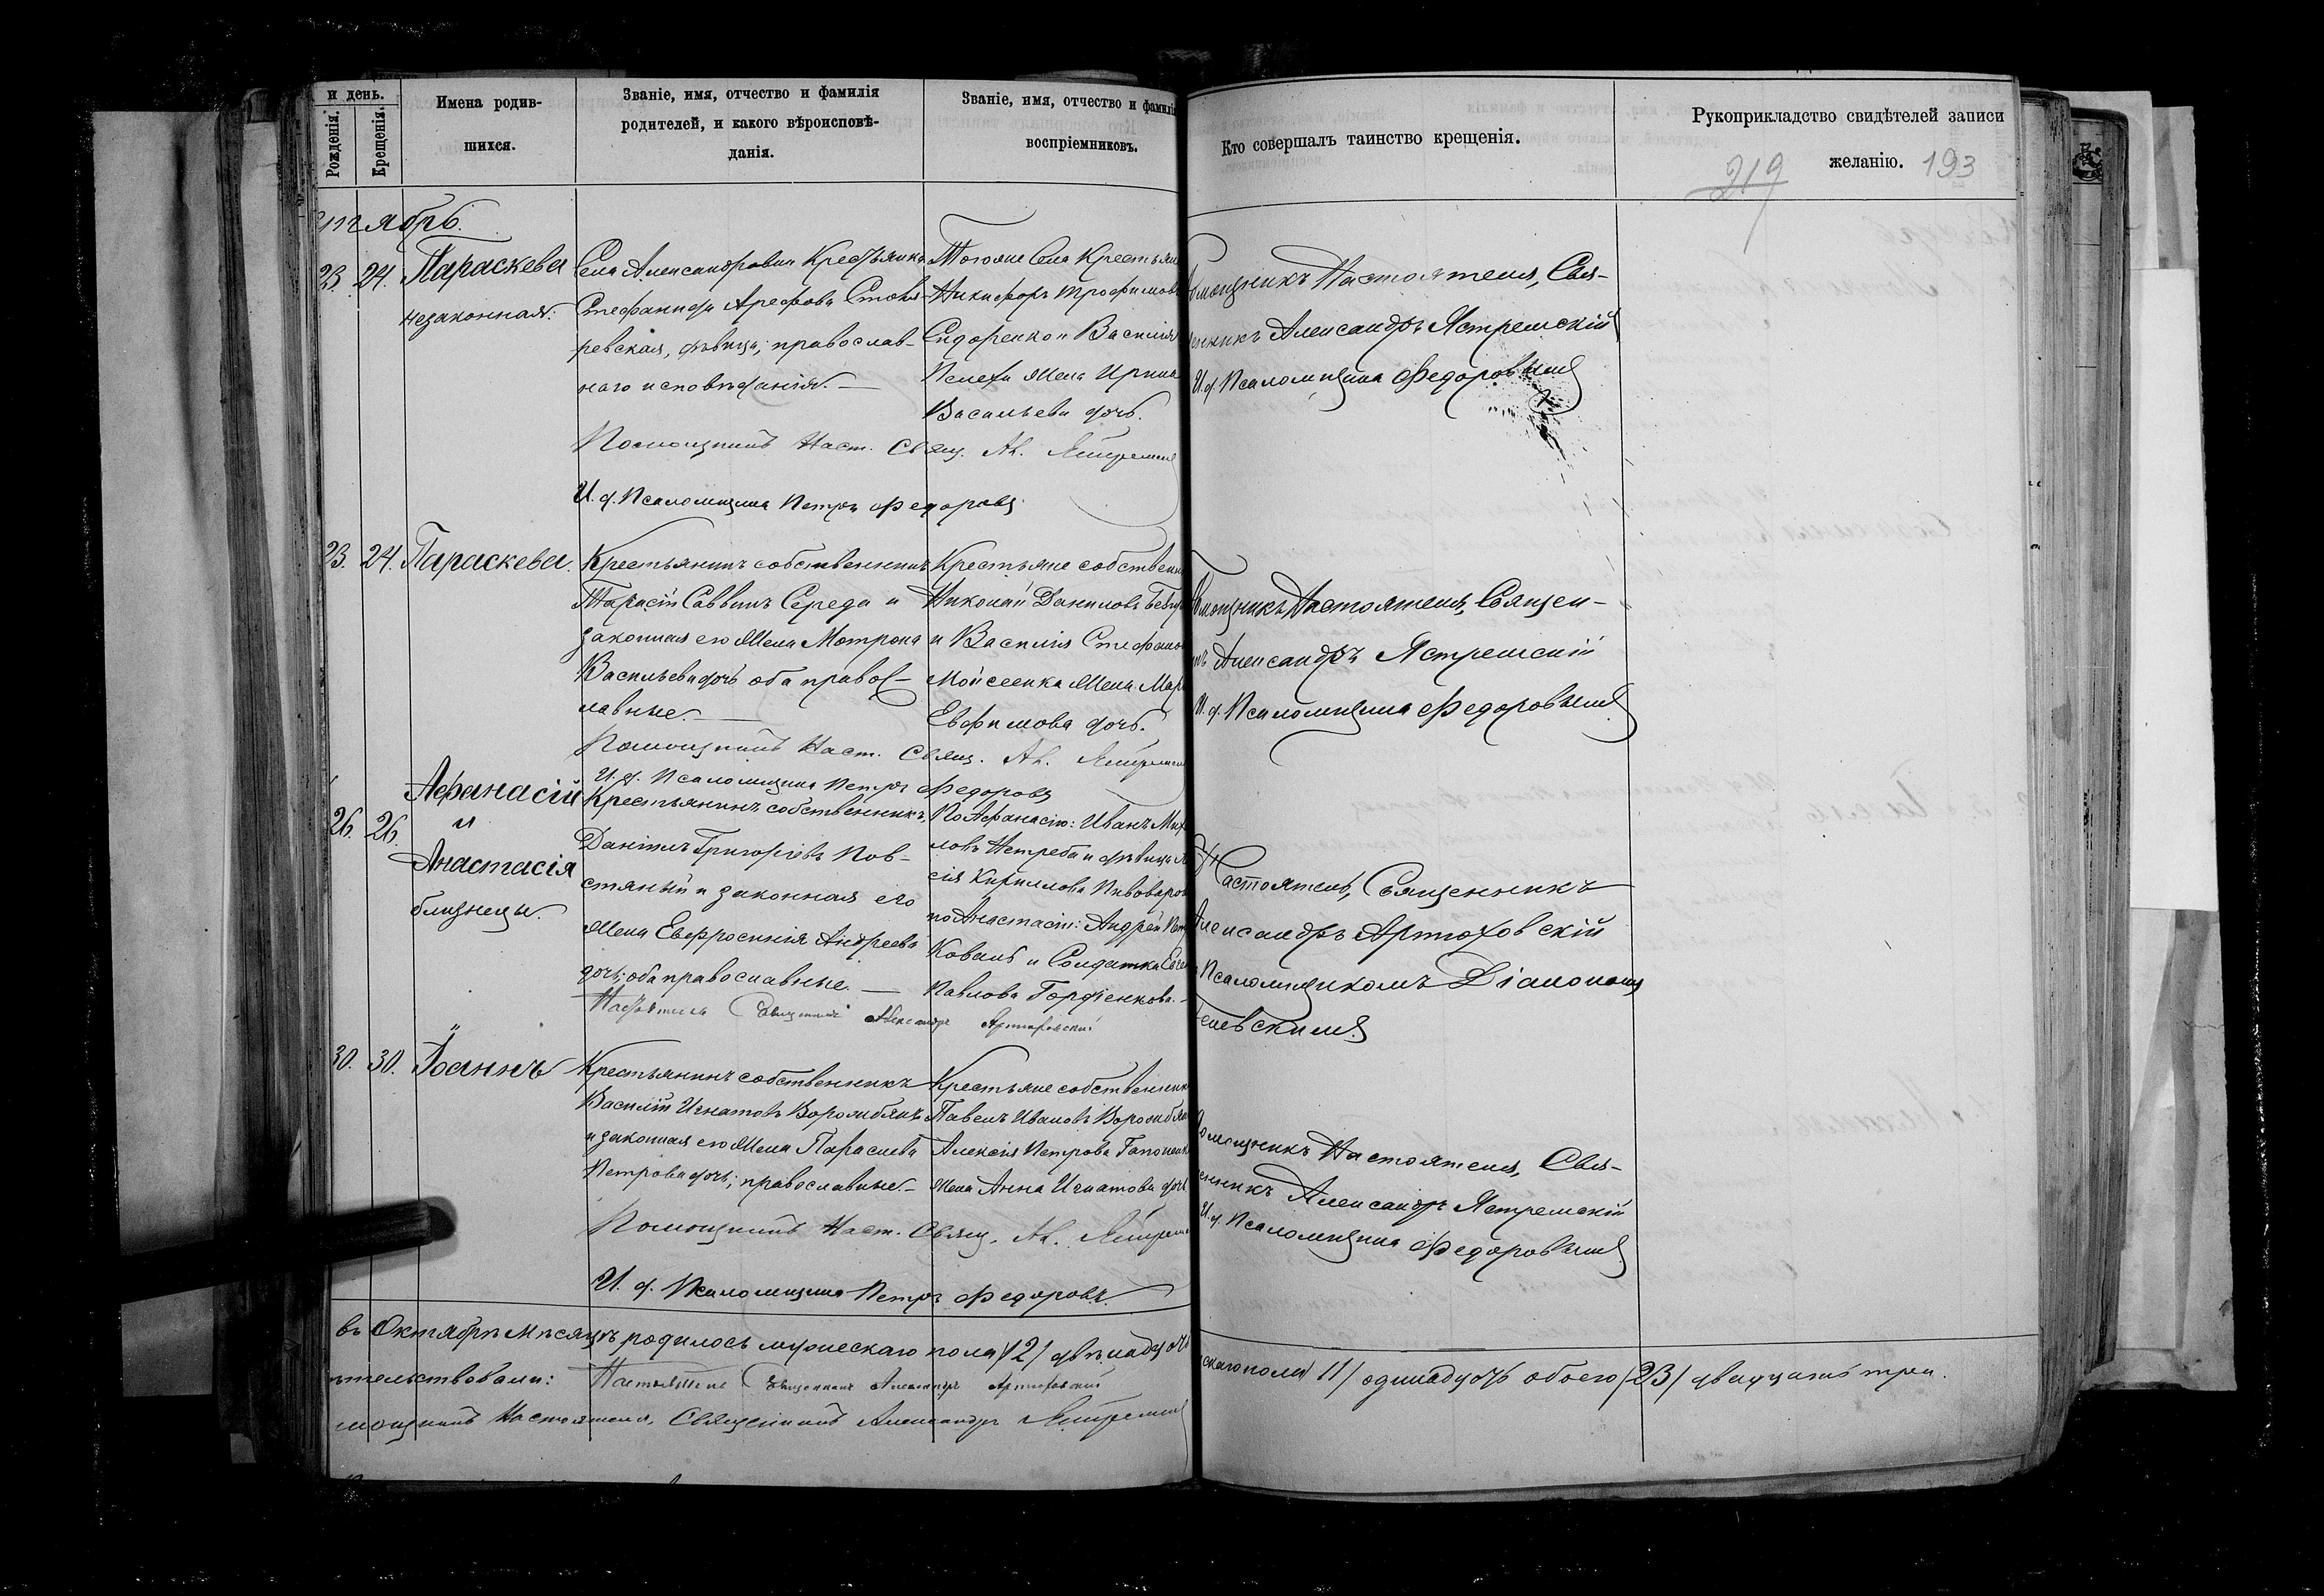 и день.
Рожденія.
Крещенія.
Имена родив-
шихся.
Званіе, имя, отчество и фамилія
родителей, и какого вѣроисповѣ-
данія.
Званіе, имя, отчество и фамилія
воспріемниковъ.
Кто совершалъ таинство крещенія.
Рукоприкладство свидѣтелей записи
желанію.
219
193
тябрь.
23. 24. Параскева
незаконная.
Села Александровки Крестьянка
Стефанида Арефова Столя-
ревская, дѣвица; православ-
наго исповѣданія. —
Тогоже Села Крестьяне
Никифоръ Трофимовъ
Сидоренко и Василія
жена Ирина
Васильева дочь.
Помощникъ Наст. Свящ. Ал. Ястремскій
И. д. Псаломщика Петръ Федоровъ
мощникъ Настоятеля, Свя-
щенникъ Александръ Ястремскій
И. д. Псаломщика Федоровымъ
23. 24. Параскева.
Крестьянинъ собственникъ
Тарасій Саввинъ Середа и
законная его жена Мотрона
Васильева дочь оба правос-
лавные. —
Крестьяне собственн
Николай Даниловъ
и Василія Стефано
Мойсеенка жена Мар
Евфимова дочь.
Помощникъ Наст. Свящ. Ал. Ястремскій
И. д. Псаломщика Петръ Федоровъ
мощникъ Настоятеля, Священ-
никъ Александръ Ястремскій
И. д. Псаломщика Федоровымъ
26. 26. Афанасій
и
Анастасія
близнецы.
Крестьянинъ собственникъ,
Даніилъ Григоріевъ Пов-
стяный и законная его
жена Евфросинія Андреева
дочь; оба православные. —
По Афанасію: Иванъ Мих
ловъ Нетреба и дѣвица
сія Кириллова Пивоваров
по Анастасіи: Андрей Пет
Коваль и Солдатка
Павлова Гордіенкова. —
Настоятель Священникъ Александръ Артюховскій
Настоятель, Священникъ
Александръ Артюховскій
Псаломщикомъ Діакономъ
левскимъ
30. 30. Іоаннъ
Крестьянинъ собственникъ
Василій Игнатовъ Ворожбянъ
и законная его жена Параскева
Петрова дочь; православные. —
Крестьяне собственник
Павелъ Ивановъ Ворожбян
Алексія Петрова Гапоненк
жена Анна Игнатова дочь
Помощникъ Наст. Свящ. Ал. Ястремскій
И. д. Псаломщика Петръ Федоровъ.
мощникъ Настоятеля, Свя-
щенникъ Александръ Ястремскій
И. д. Псаломщика Федоровымъ
въ Октябрѣ мѣсяцѣ родилось мужескаго пола /12/ двѣнадцать
скаго пола /11/ одинадцать обоего /23/ двадцать три.
ѣтельствовали: Настоятель Священникъ Александръ Артюховскій
мощникъ Настоятеля, Священникъ Александръ Ястремскій